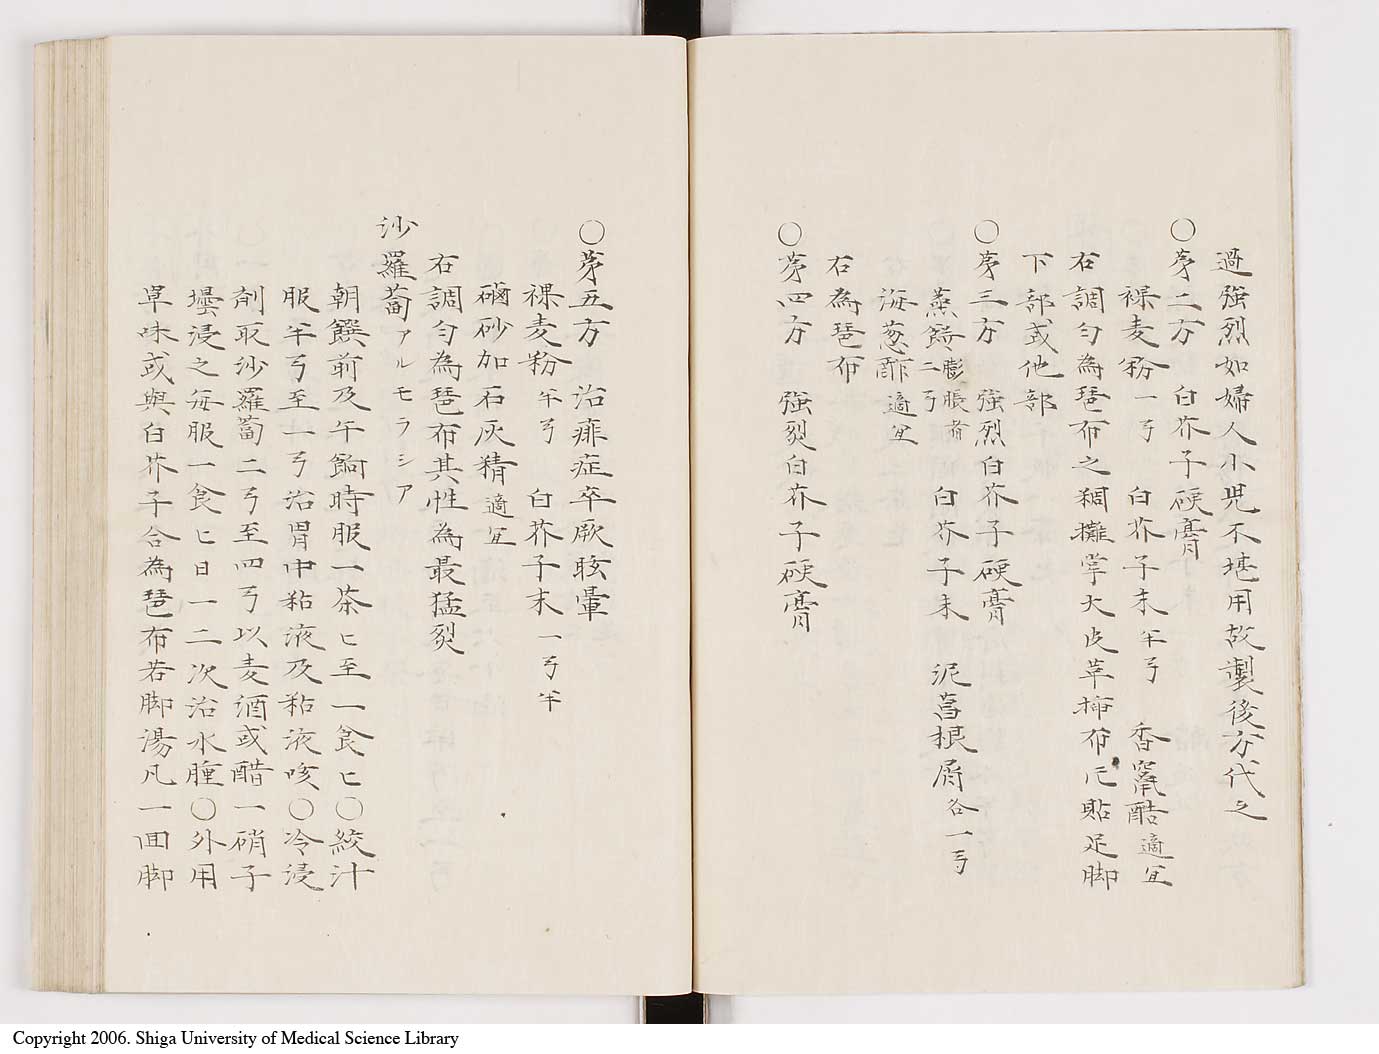 過強烈如婦人小児不堪用故製後方代之
○第二方　白芥子硬膏
裸麦粉一弓　白芥子末半弓　香竄酷適宜
右調匀為琶布之稠攤掌大皮革揷布片貼足脚
下部或他部
○第三方　強烈白芥子硬膏
蒸餅二弓膨脹者　白芥子末　泥菖根屑各一弓
海葱酢適宜
右為琶布
○第四方　強裂白芥子硬膏
○第五方　治痱症卒厥眩暈
裸麦粉半弓　白芥子末一弓半
磠砂加石灰精適宜
右調匀為琶布其性為最猛烈
沙羅蔔アルモラシア
朝饌前及午餉時服一茶匕至一食匕○絞汁
服半弓至一弓治胃中粘液及粘液咳○冷浸
剤取沙羅蔔二弓至四弓以麦酒或醋一硝子
壜浸之毎服一食匕日一二次治水腫○外用
単味或與白芥子合為琶布若脚湯凡一回脚
Copyright 2006. Shiga University of Medical Science Library